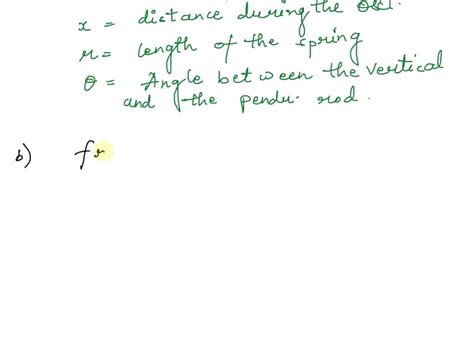 x = distance during the osci.
r = length of the spring
θ = Angle between the vertical
and the pendu. rod.
b) fr